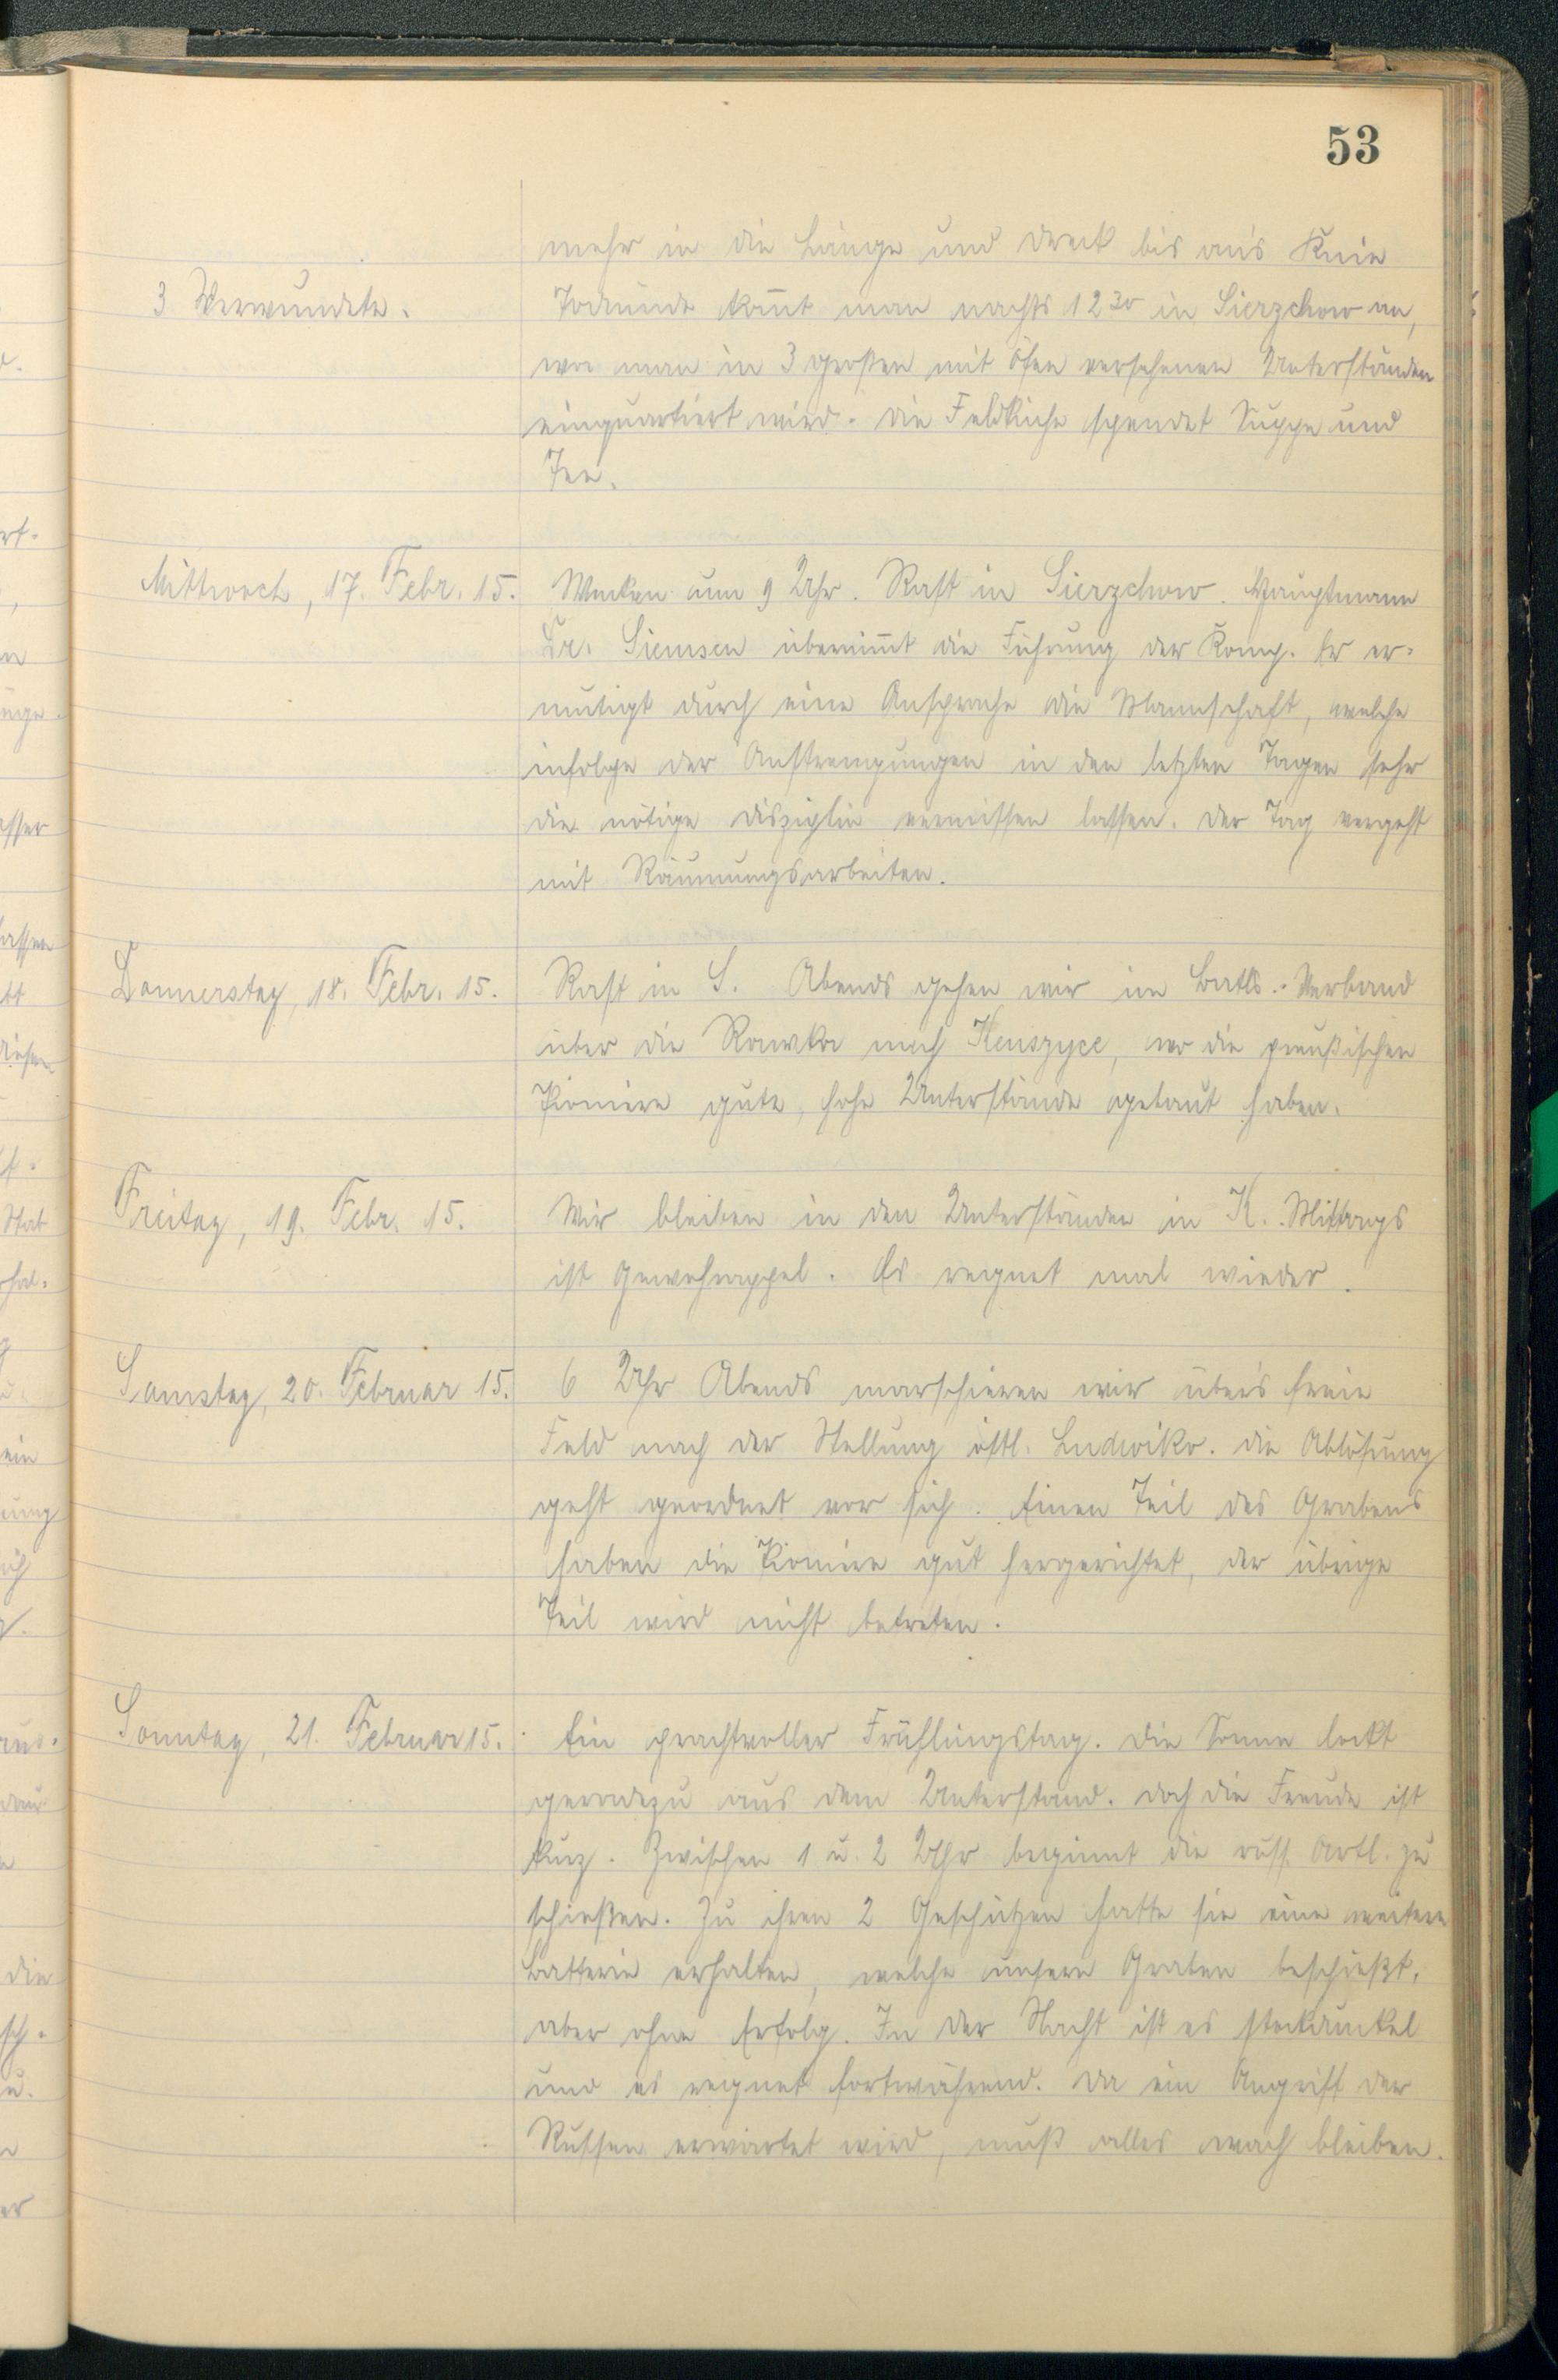 53
mehr in die Länge und Dreck bis an's Knie
3 Verwundete.
Todmüde kom̅t man nachts 12 30 in Sierzchow an,
wo man in 3 großen mit Öfen versehenen Unterständen
einquartiert wird. Die Feldküche spendet Suppe und
Tee.
Mittwoch, 17. Febr. 15.
Wecken um 9 Uhr. Rast in Sierzchow. Hauptmann
Dr. Siemsen übernim̅t die Führung der Komp. Er er-
mutigt durch eine Ansprache die Mannschaft, welche
infolge der Anstrengungen in den letzten Tagen sehr
die nötige Disziplin vermissen lassen. Der Tag vergeht
mit Räumungsarbeiten.
Donnerstag, 18. Febr. 15.
Rast in S. Abends gehen wir im Batls.-Verband
über die Rawka nach Kenszyce, wo die preußischen
Pioniere gute, hohe Unterstände gebaut haben.
Freitag, 19. Febr. 15.
Wir bleiben in den Unterständen in K. Mittags
ist Gewehrappel. Es regnet mal wieder.
Samstag, 20. Februar 15.
6 Uhr Abends marschieren wir über's freie
Feld nach der Stellung östl. Ludwiko. Die Ablösung
geht geordnet vor sich. Einen Teil des Grabens
haben die Pioniere gut hergerichtet, der übrige
Teil wird nicht betreten.
Sonntag, 21. Februar 15.
Ein prachtvoller Frühlingstag. Die Sonne lockt
geradezu aus dem Unterstand. Doch die Freude ist
kurz. Zwischen 1 u. 2 Uhr beginnt die russ. Artl. zu
schießen. Zu ihren 2 Geschützen hatte sie eine weitere
Batterie erhalten, welche unsern Graben beschießt,
aber ohne Erfolg. In der Nacht ist es stockdunkel
und es regnet fortwährend. Da ein Angriff der
Russen erwartet wird, muß alles wach bleiben.